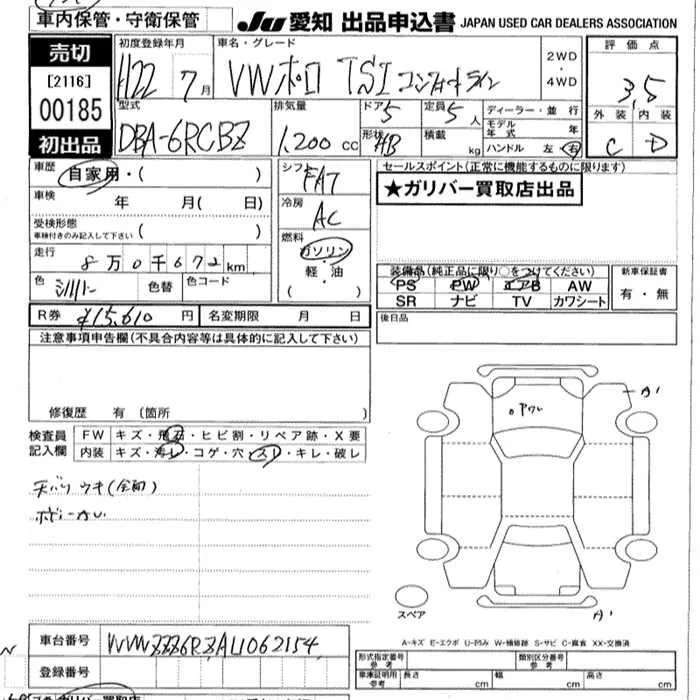 車内保管・守衛保管
JU 愛知 出品申込書 JAPAN USED CAR DEALERS ASSOCIATION
売切
[2116]
00185
初出品
初度登録年月
H22 7月
車名・グレード
VWポロ TSIコンフォートライン
2WD
・
4WD
評価点
3,5
外装 内装
C D
型式
DBA-6RCBZ
排気量
1,200 cc
ドア 5
定員 5人
形状 HB
積載 kg
ディーラー・並行
モデル年式 年
ハンドル 左・右
車歴 自家用・( )
車検 年 月( 日)
受検形態
車検付きのみ記入して下さい ( )
走行
8万0千672km
色 シルバー 色替 色コード
シフト
FAT
冷房
AC
燃料
ガソリン
・
軽・油
( )
セールスポイント(正常に機能するものに限ります)
★ガリバー買取店出品
装備品(純正品に限り○をつけてください)
PS PW エアB AW
SR ナビ TV カワシート
新車保証書
有・無
R券 ¥15,610円 名変期限 月 日
後日品
注意事項申告欄(不具合内容等は具体的に記入して下さい)
修復歴 有 〔箇所 〕
検査員
記入欄
FW キズ・飛石・ヒビ割・リペア跡・X要
内装 キズ・汚レ・コゲ・穴・スレ・キレ・破レ
天バリ ウキ(全面)
A1
スペア
A1
A-キズ E-エクボ U-凹み W-補修跡 S-サビ C-腐食 XX-交換済
車台番号 WVWZZZ6RZAU062154
登録番号
形式指定番号
参考
類別区分番号
参考
車庫証明用
参考
長さ cm 幅 cm 高さ cm
ガリバー買取店